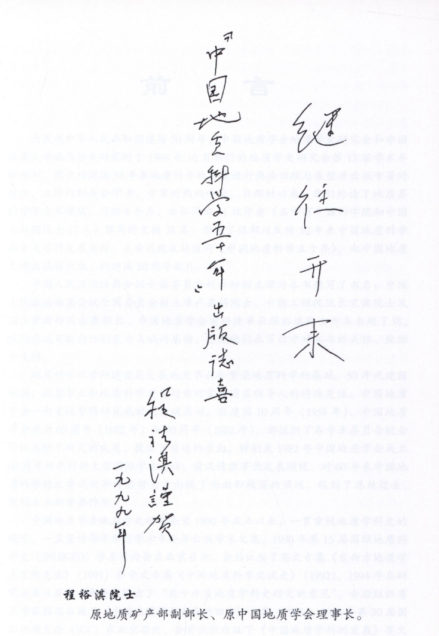 继往开来
《中国地质科学五十年》出版誌喜
程裕淇謹贺
一九九九年
程裕淇院士
原地质矿产部副部长、原中国地质学会理事长。